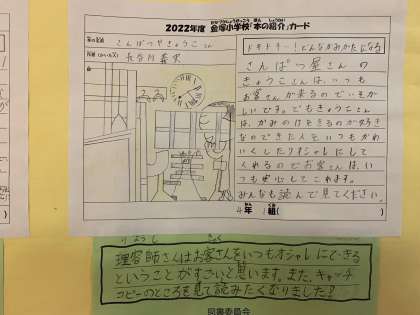 2022年度 金塚小学校「本の紹介」カード
さんぱつやきょうこさん
長谷川義史
ドキドキー!どんなかみがたになる
さんぱつ屋さんの
きょうこさんは、いつも
お客さんが来るのでいそが
しいです。でもきょうこさん
は、かみのけをきるのが好き
なのできた人をいつもかわ
いくしたりオシャレにして
くれるのでお客さんは、い
つも安心してこれます。
みんなも読んで見てください。
4年 1組( )
理容師さんはお客さんをいつもオシャレにできる
ということがすごいと思います。また、キャッチ
コピーのところを見て読みたくなりました!
図書委員会